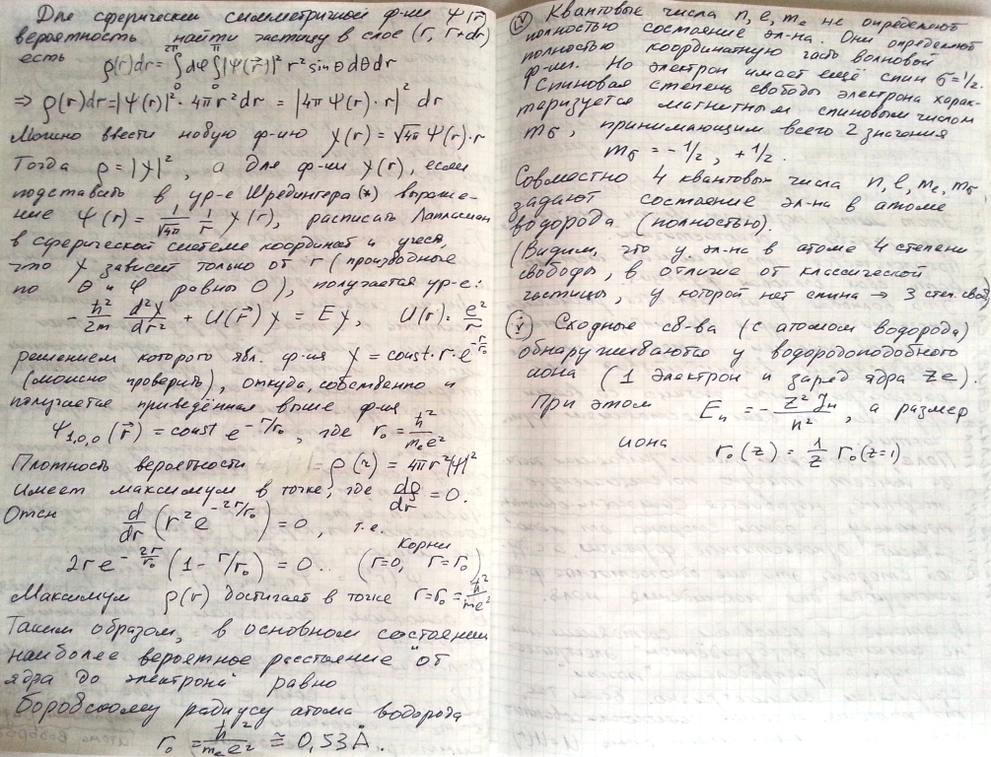 Для сферически симметричной ф-ии Ψ(r)
вероятность найти частицу в слое (r, r+dr)
есть ρ(r)dr = ∫₀^{2π} dφ ∫₀^{π} |Ψ(r⃗)|² r² sinθ dθ dr
⇒ ρ(r)dr = |Ψ(r)|² · 4πr² dr = |4π Ψ(r)·r|² dr
Можно ввести новую ф-ию χ(r) = √4π Ψ(r)·r
Тогда ρ = |χ|², а для ф-ии χ(r), если
подставить в ур-е Шредингера (*) выраже-
ние Ψ(r) = 1/√4π 1/r χ(r), расписать Лапласиан
в сферической системе координат и учесть,
что χ зависит только от r (производные
по θ и φ равны 0), получается ur-е:
- ħ²/2m d²χ/dr² + U(r⃗)χ = Eχ, U(r) = e²/r
решением которого явл. ф-ия χ = const·r·e^{-r/r₀}
(можно проверить), откуда, собственно и
получается приведённая выше ф-ия
Ψ₁,₀,₀(r⃗) = const e^{-r/r₀}, где r₀ = ħ²/mₑe²
Плотность вероятности ρ(r) = 4πr²|Ψ|²
имеет максимум в точке, где dρ/dr = 0.
Отсн d/dr (r² e^{-2r/r₀}) = 0, т.е.
2r e^{-2r/r₀} (1 - r/r₀) = 0.. (Корни r=0, r=r₀)
Максимум ρ(r) достигает в точке r = r₀ = ħ²/me²
Таким образом, в основном состоянии
наиболее вероятное расстояние "от
ядра до электрона" равно
боровскому радиусу атома водорода
r₀ = ħ²/mₑe² ≅ 0,53 Å.
(iv) Квантовые числа n, l, mₑ не определяют
полностью состояние эл-на. Они определяют
полностью координатную часть волновой
ф-ии. Но электрон имает ещё спин σ=1/2.
Спиновая степень свободы электрона харак-
теризуется магнитным спиновым числом
m_σ, принимающим всего 2 значения
m_σ = -1/2, +1/2.
Совместно 4 квантовых числа n, l, mₑ, m_σ
задают состояние эл-на в атоме
водорода (полностью).
(Видим, что у эл-на в атоме 4 степени
свободы, в отличие от классической
частицы, у которой нет спина → 3 степ. своб)
(v) Сходные св-ва (с атомом водорода)
обнаруживаются у водородоподобного
иона (1 электрон и заряд ядра Ze).
При этом Eₙ = - Z² J_н/n², а размер
иона r₀(z) = 1/z r₀(z=1)